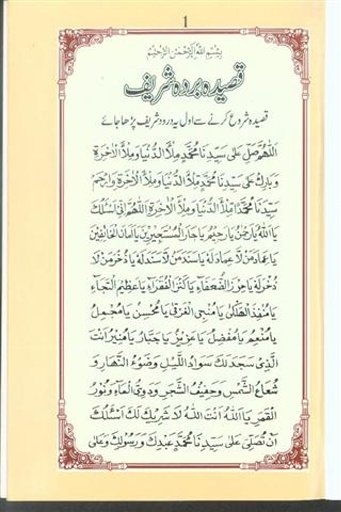 1
بِسْمِ اللهِ الرَّحْمٰنِ الرَّحِيْمِ
قصیدہ بردہ شریف
قصیدہ شروع کرنے سے اول یہ درود شریف پڑھا جائے
اَللّٰهُمَّ صَلِّ عَلٰى سَيِّدِنَا مُحَمَّدٍ مِلْأَ الدُّنْيَا وَمِلْأَ الْاٰخِرَةِ
وَبَارِكْ عَلٰى سَيِّدِنَا مُحَمَّدٍ مِلْأَ الدُّنْيَا وَمِلْأَ الْاٰخِرَةِ وَارْحَمْ
سَيِّدَنَا مُحَمَّدًا مِلْأَ الدُّنْيَا وَمِلْأَ الْاٰخِرَةِ اَللّٰهُمَّ اِنِّیْ اَسْئَلُكَ
يَا اَللهُ يَا رَحْمٰنُ يَا رَحِيْمُ يَا جَارَ الْمُسْتَجِيْرِيْنَ يَا اَمَانَ الْخَائِفِيْنَ
يَا عِمَادَ مَنْ لَّا عِمَادَ لَهٗ يَا سَنَدَ مَنْ لَّا سَنَدَ لَهٗ يَا ذُخْرَ مَنْ لَّا
ذُخْرَ لَهٗ يَا حِرْزَ الضُّعَفَاءِ يَا كَنْزَ الْفُقَرَاءِ يَا عَظِيْمَ الرَّجَاءِ
يَا مُنْقِذَ الْهَلْكٰى يَا مُنْجِیَ الْغَرْقٰى يَا مُحْسِنُ يَا مُجْمِلُ
يَا مُنْعِمُ يَا مُفْضِلُ يَا عَزِيْزُ يَا جَبَّارُ يَا مُنِيْرُ اَنْتَ
الَّذِیْ سَجَدَ لَكَ سَوَادُ اللَّيْلِ وَضَوْءُ النَّهَارِ وَ
شُعَاعُ الشَّمْسِ وَحَفِيْفُ الشَّجَرِ وَدَوِیُّ الْمَاءِ وَنُوْرُ
الْقَمَرِ يَا اَللهُ اَنْتَ اللهُ لَا شَرِيْكَ لَكَ اَسْئَلُكَ
اَنْ تُصَلِّیَ عَلٰى سَيِّدِنَا مُحَمَّدٍ عَبْدِكَ وَرَسُوْلِكَ وَعَلٰى